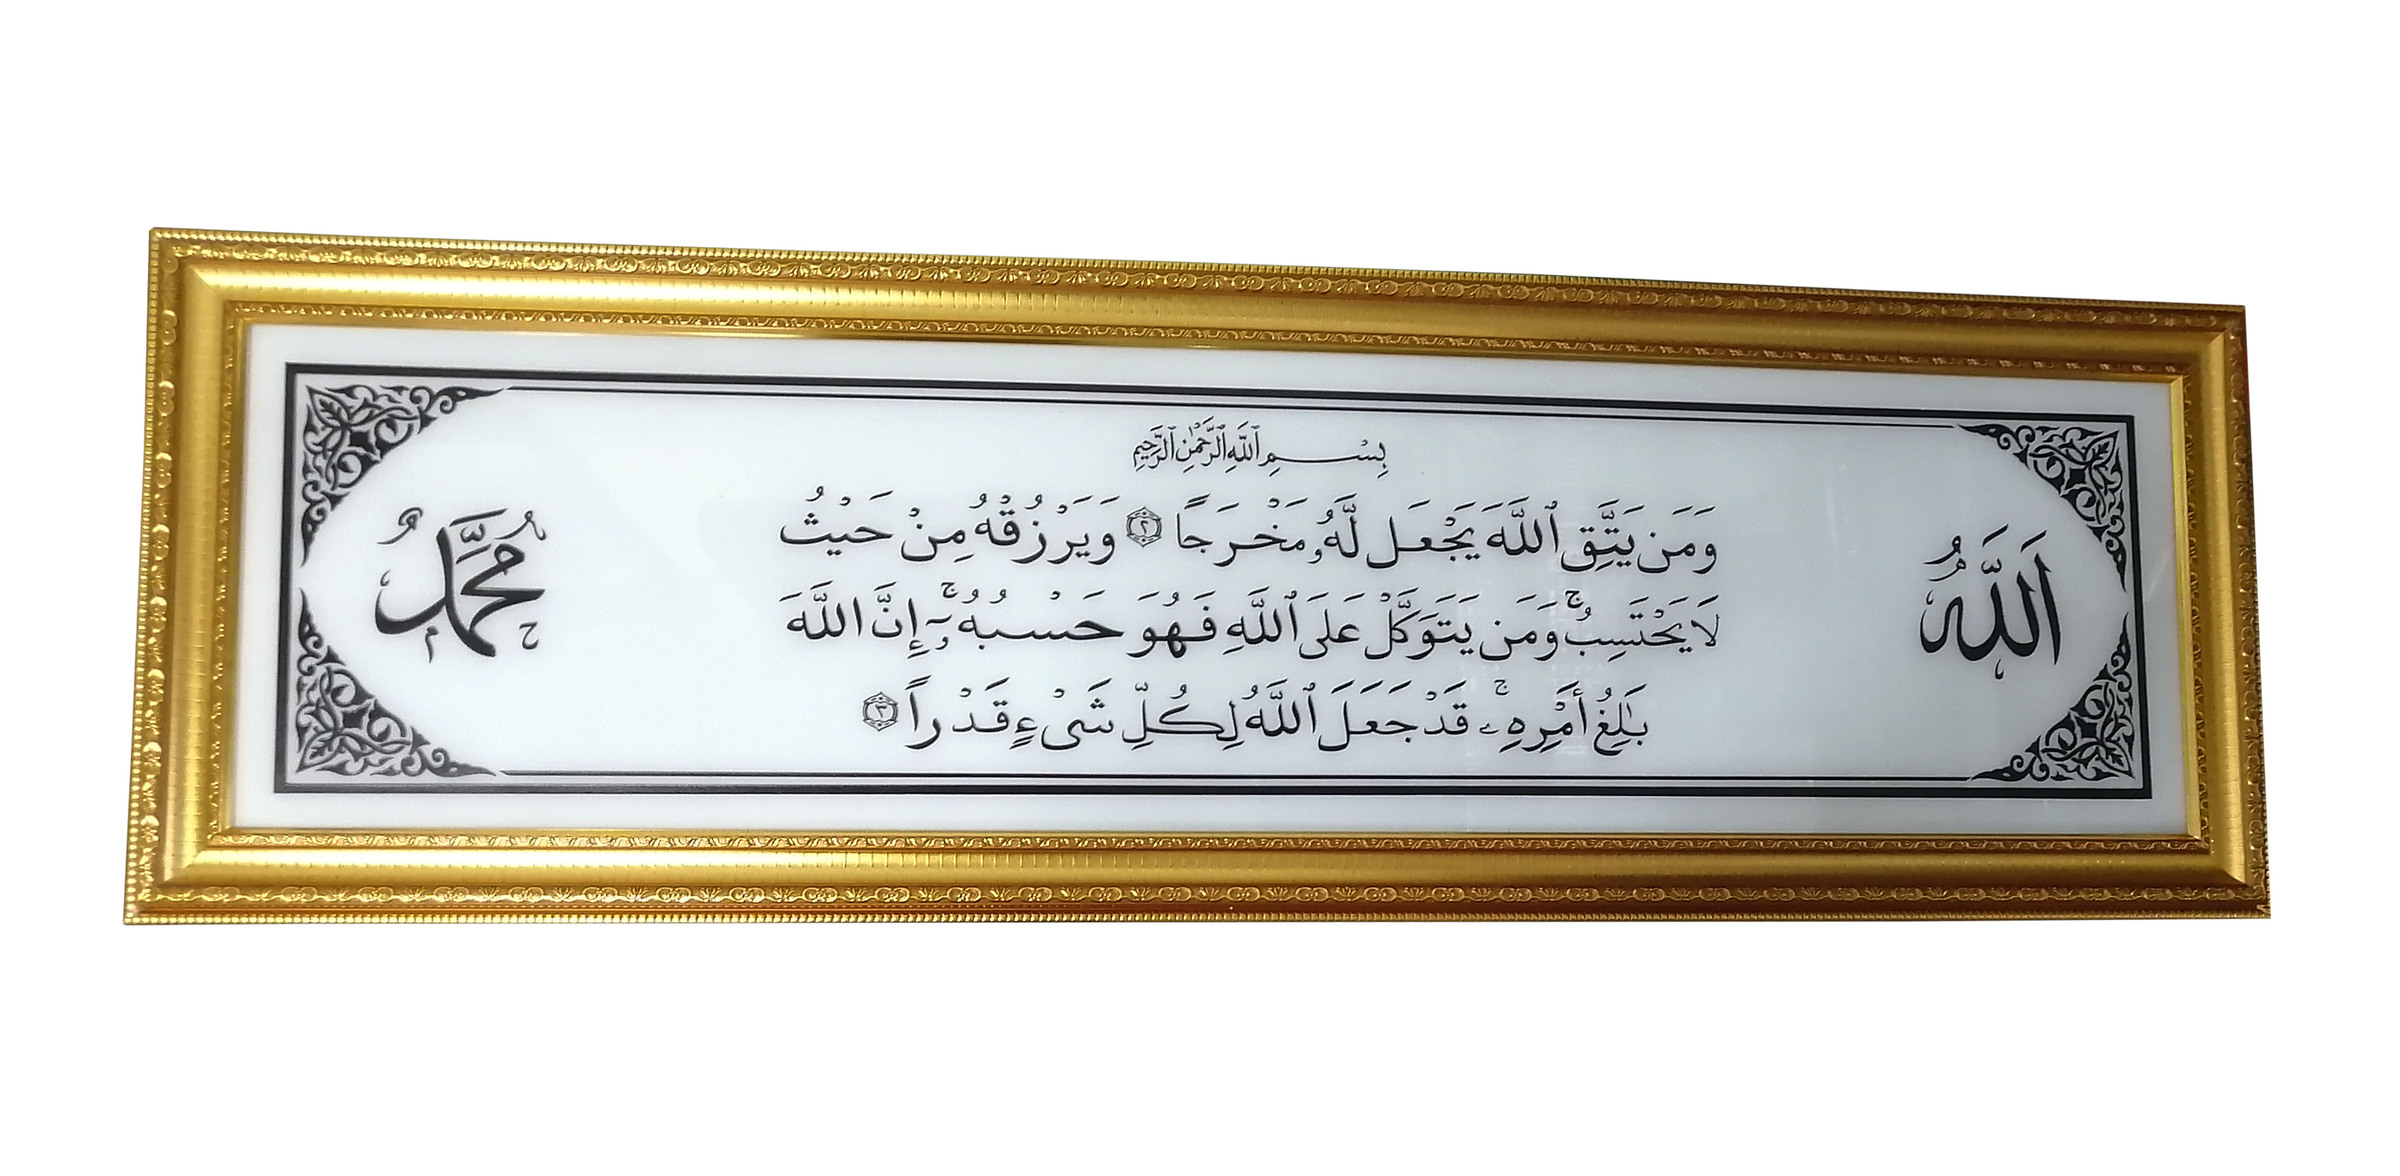 بِسْمِ ٱللَّهِ ٱلرَّحْمَٰنِ ٱلرَّحِيمِ
ٱللَّهُ
وَمَن يَتَّقِ ٱللَّهَ يَجْعَل لَّهُۥ مَخْرَجًا ٢ وَيَرْزُقْهُ مِنْ حَيْثُ
لَا يَحْتَسِبُ ۚ وَمَن يَتَوَكَّلْ عَلَى ٱللَّهِ فَهُوَ حَسْبُهُۥٓ ۚ إِنَّ اللَّهَ
بَٰلِغُ أَمْرِهِۦ ۚ قَدْ جَعَلَ ٱللَّهُ لِكُلِّ شَىْءٍ قَدْرًا ٣
مُحَمَّدٌ